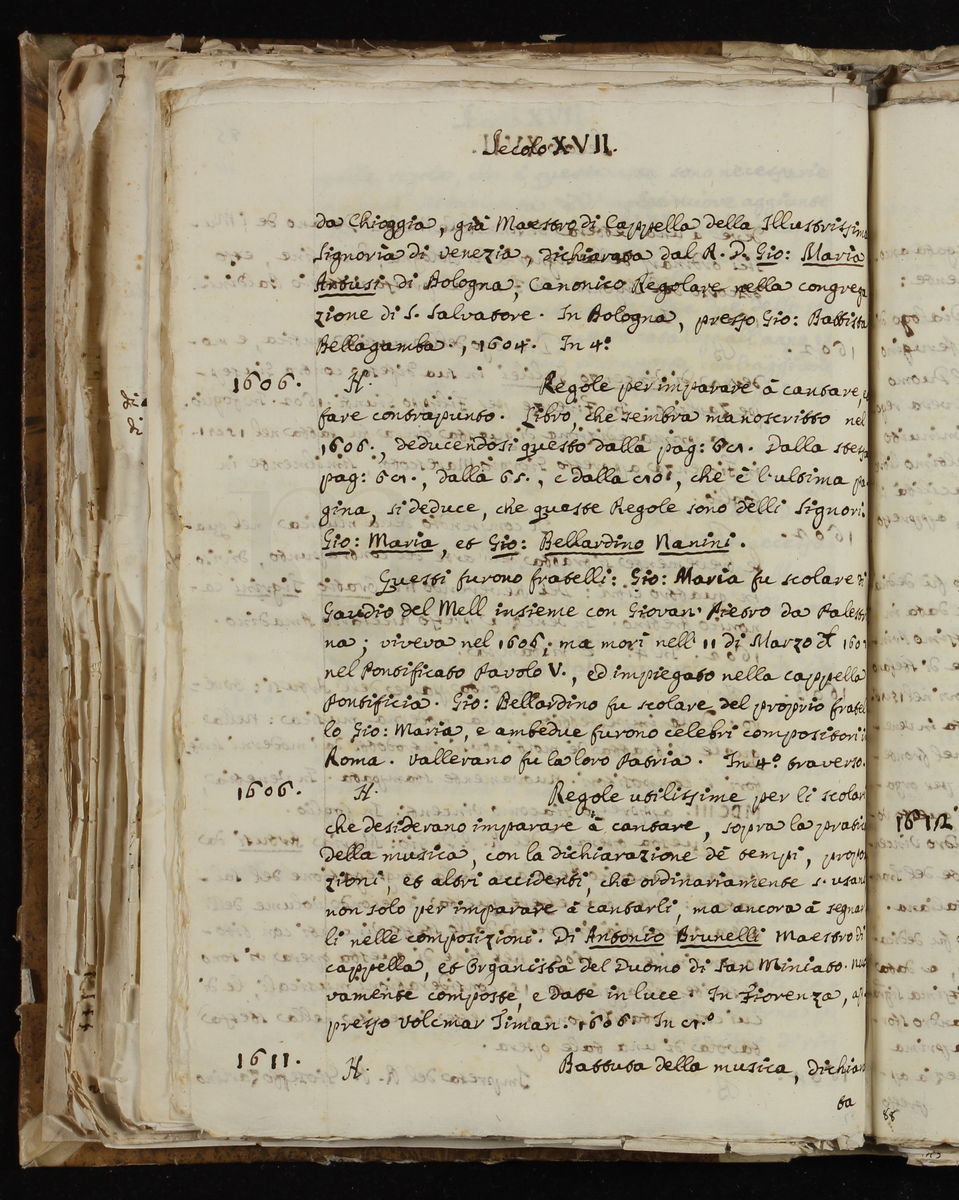 Secolo XVII.
da Chioggia, già Maestro di Cappella della Illustrissima
Signoria di Venezia, dichiarata dal R. D. Gio: Maria
Artusi di Bologna, Canonico Regolare nella congrega
zione di S. Salvatore. In Bologna, presso Gio: Battista
Bellagamba., 1604. In 4.º
1606. H. Regole per imparare à cantare, e
fare contrapunto. Libro, che sembra manoscritto nel
1606., deducendosi questo dalla pag: Dalla stessa
pag: dalla 65., e dalla che è l'ultima pa
gina, si deduce, che queste Regole sono delli Signori
Gio: Maria, et Gio: Bellardino Nanini.
Questi furono fratelli: Gio: Maria fu scolare di
Gaudio del Mell insieme con Giovan Pietro da Palest
na; viveva nel 1606; ma morì nell' 11 di Marzo
nel Pontificato Pavolo V., ed impiegato nella cappella
Pontificia. Gio: Bellardino fu scolare del proprio fratel
lo Gio: Maria, e ambedue furono celebri compositori i
Roma. Vallerano fu la loro Patria. In 4.º traverso.
1606. H. Regole utilissime per li scolari
che desiderano imparare à cantare, sopra la pratic
della musica, con la dichiarazione dè tempi, propor
zioni, et altri accidenti, che ordinariamente s. usan
non solo per imparare à cantarli, ma ancora à segnar
li nelle composizioni. Di Antonio Brunelli Maestro di
cappella, et Organista del Duomo di San Miniato. Nuo
vamente composte, e date in luce. In Fiorenza, ap
presso Volcmar Timan. 1606. In
1611. H. Battuta della musica, dichiara
ta
di
di
1612
88